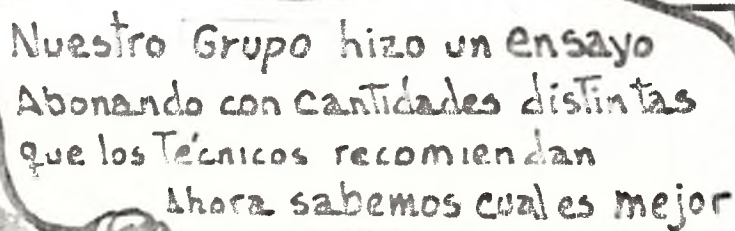 Nuestro Grupo hizo un ensayo
Abonando con cantidades distintas
que los Técnicos recomiendan
Ahora sabemos cual es mejor